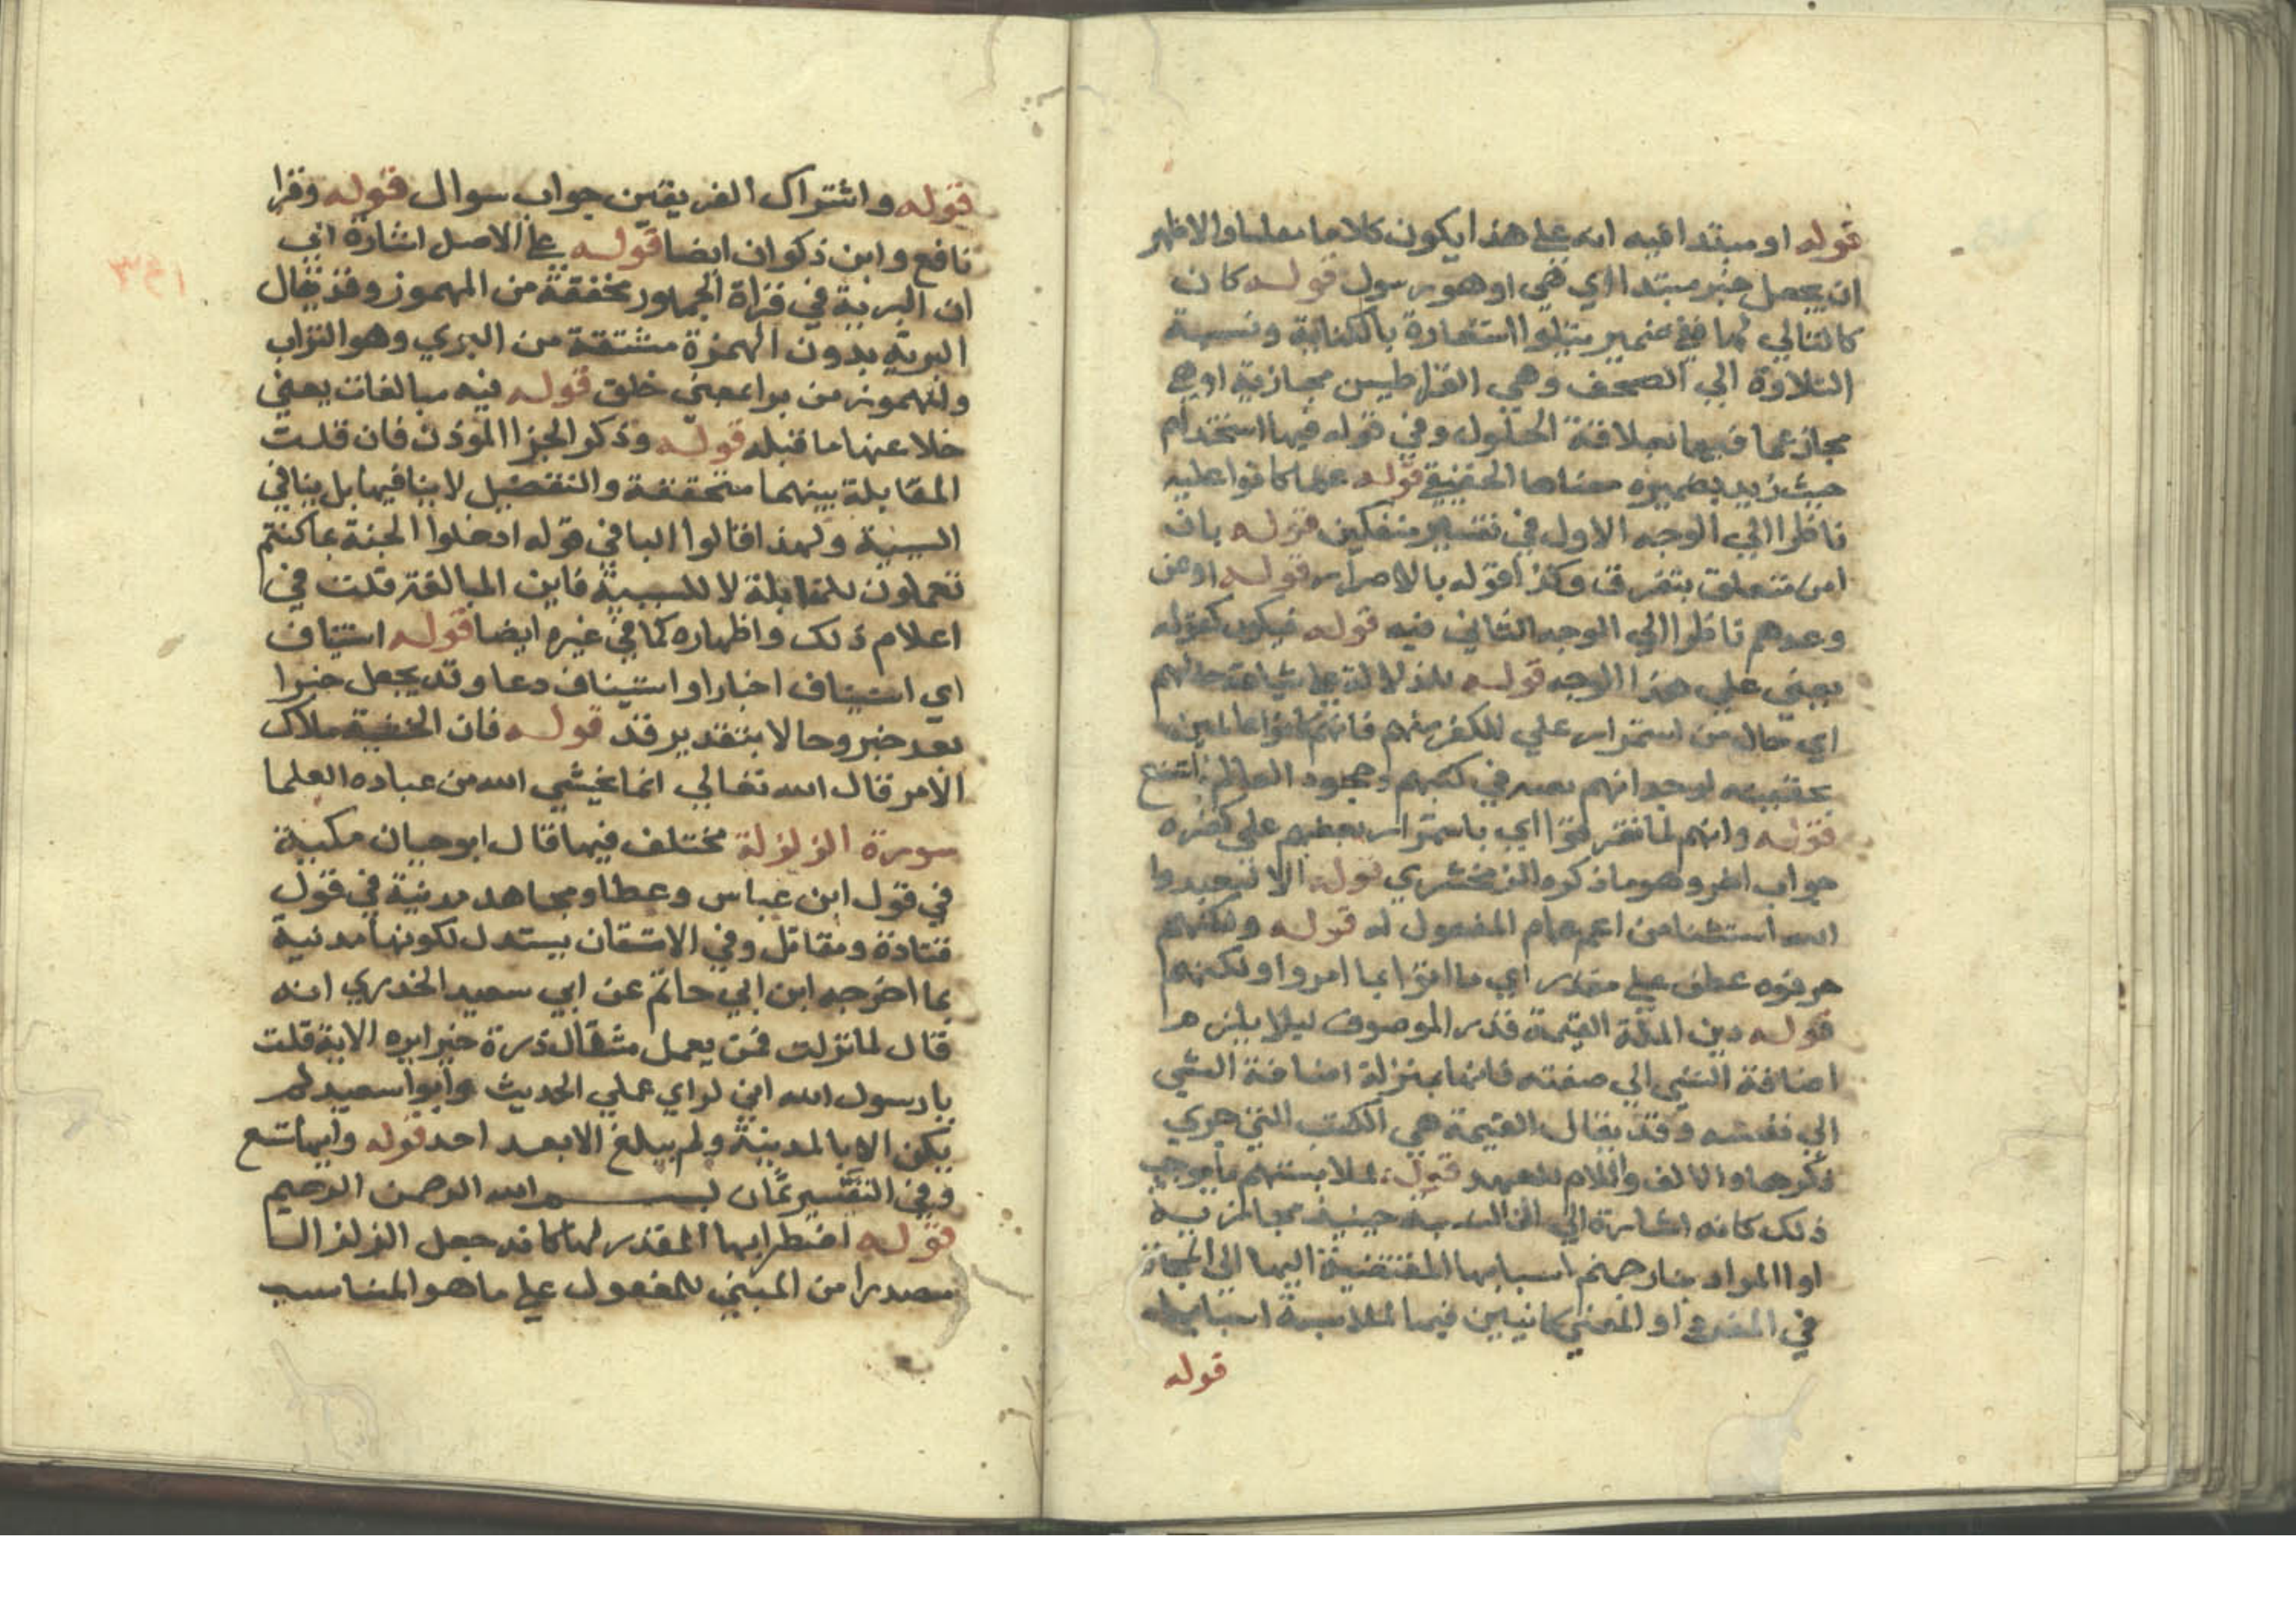 قوله او مبتدا فيه انه على هذا يكون كلاما والاظهر
ان يجعل خبر مبتدا اي هي او هو رسول قوله كان
كالتالي لها ففي ضمير يتلوا استعارة بالكناية ونسبة
التلاوة الي الصحف وهي القراطيس مجازية او هي
مجاز عما فيها بعلاقة الحلول وفي قوله فيها استخدام
حيث اريد بضميره معناها الحقيقي قوله عما كانوا عليه
ناظرا الي الوجه الاول في تفسير منفكين قوله بان
امن متعلق بتفرق وكذا قوله بالاصرار قوله او عن
وعدهم ناظرا الي الوجه الثاني فيه قوله فيكون كقوله
يعني علي هذا الوجه قوله للدلالة على شناعة حالهم
اي حال من استمرار علي الكفر منهم فانهم كانوا عالمين
بحقيته لوجدانهم نعته في كتبهم وجحود العالم اشنع
قوله وانهم لما تفرقوا اي باستمرار بعضهم علي كفره
جواب اخر وهو ما ذكره الزمخشري قوله الا ليعبدوا
الله استثنا من اعم عام المفعول له قوله ولكنهم
حرفوه عطف على مقدر اي ما اتوا بما امروا ولكنهم
قوله دين الملة القيمة قدر الموصوف ليلا يلزم
اضافة الشي الي صفته فانها بمنزلة اضافة الشي
الي نفسه وقد يقال القيمة هي الكتب التي جري
ذكرها والالف واللام للعهد قوله لملابستهم ما يوجب
ذلك كانه اشارة الي ان النسبة حينيذ مجازية
او المراد بنار جهنم اسبابها المقتضية اليها الي المجاز
في المفرد او المعني كاينين فيها لملابسة اسبابها
قوله
قوله واشتراك الفريقين جواب سوال قوله وقرا
نافع وابن ذكوان ايضا قوله على الاصل اشارة الي
ان البرية في قراة الجمهور مخففة من المهموز وقد يقال
البرية بدون الهمزة مشتقة من البري وهو التراب
والمهموز من برا بمعني خلق قوله فيه مبالغات يعني
خلا عنها ما قبله قوله وذكر الجزا الموذن فان قلت
المقابلة بينهما متحققة والتفضيل لا ينافيها بل ينافي
السببية ولهذا قالوا البا في قوله ادخلوا الجنة بما كنتم
تعملون للمقابلة لا للسببية فاين المبالغة قلت في
اعلام ذلك واظهاره كما في غيره ايضا قوله استيناف
اي استيناف اخبار او استيناف دعا وقد يجعل خبرا
بعد خبر وحالا بتقدير قد قوله فان الخشية ملاك
الامر قال الله تعالي انما يخشي الله من عباده العلما
سورة الزلزلة مختلف فيها قال ابو حيان مكية
في قول ابن عباس وعطا ومجاهد مدنية في قول
قتادة ومقاتل وفي الاتقان يستدل لكونها مدنية
بما اخرجه ابن ابي حاتم عن ابي سعيد الخدري انه
قال لما نزلت فمن يعمل مثقال ذرة خيرا يره الاية قلت
يا رسول الله اني لراي عملي الحديث وابوا سعيد لم
يكن الا بالمدينة ولم يبلغ الا بعد احد قوله وايها تسع
وفي التفسير ثمان بسم الله الرحمن الرحيم
قوله اضطرابها المقدر لها كانه جعل الزلزال
مصدرا من المبني للمفعول على ما هو المناسب